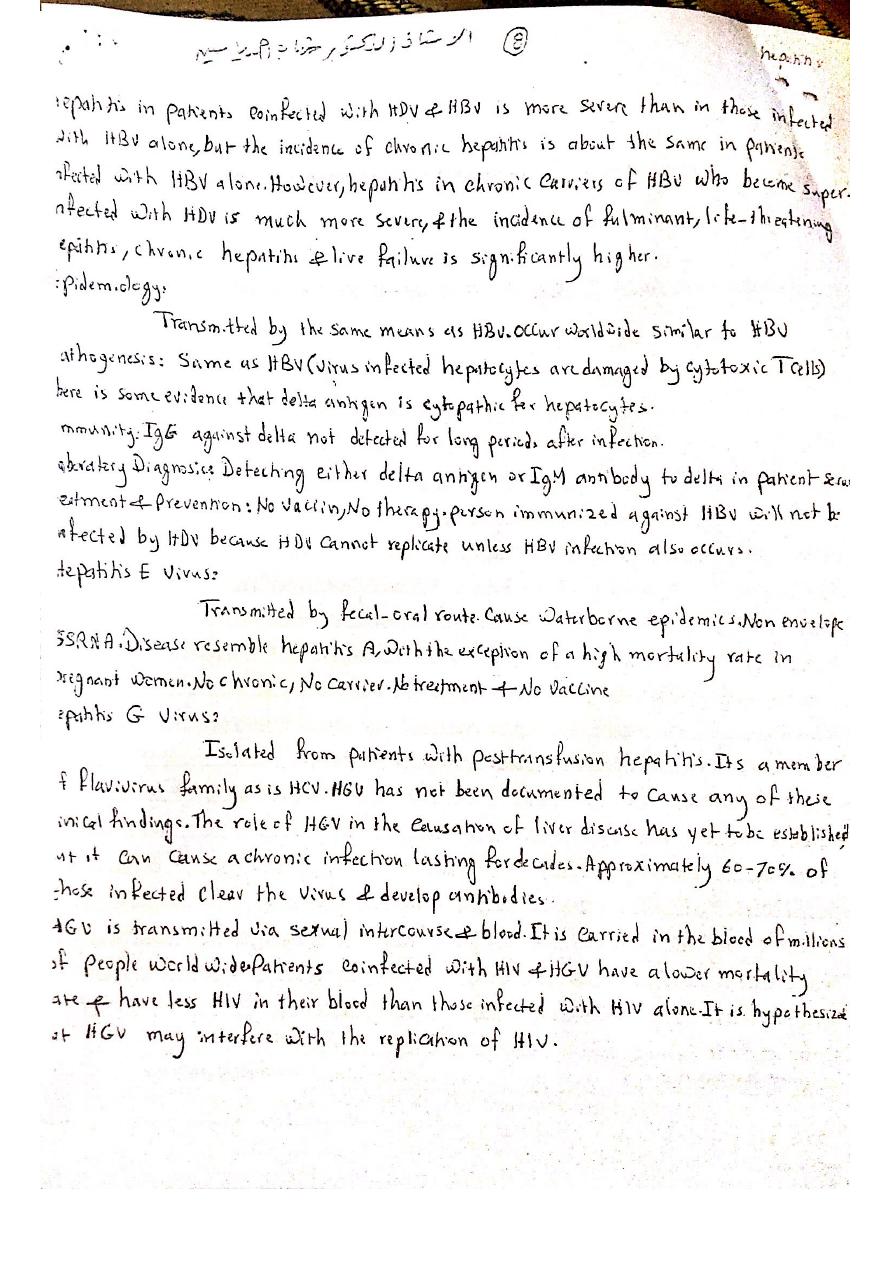 الاستاذ الدكتور 8
hepatitis
epatitis in patients coinfected with HDV & HBV is more severe than in those infected
with HBV alone, but the incidence of chronic hepatitis is about the same in patients
nfected with HBV alone. However, hepatitis in chronic Carriers of HBV who become super-
nfected with HDV is much more severe, & the incidence of fulminant, life-threatening
epatitis, chronic hepatitis & live failure is significantly higher.
pidemiology:
Transmitted by the same means as HBV. occur worldwide similar to HBV
athogenesis: Same as HBV (virus infected hepatocytes are damaged by cytotoxic T cells)
here is some evidence that delta antigen is cytopathic for hepatocytes.
mmunity: IgG against delta not detected for long periods after infection.
aboratory Diagnosis: Detecting either delta antigen or IgM antibody to delta in patient seru
eatment & Prevention: No vaccin, No therapy. person immunized against HBV will not be
nfected by HDV because HDV cannot replicate unless HBV infection also occurs.
Hepatitis E Virus:
Transmitted by fecal-oral route. Cause waterborne epidemics. Non envelope
SSRNA. Disease resemble hepatitis A, with the exception of a high mortality rate in
pregnant women. No chronic, No carrier. No treatment & No vaccine
epatitis G Virus:
Isolated from patients with posttransfusion hepatitis. Its a member
f flavivirus family as is HCV. HGV has not been documented to cause any of these
inical findings. The role of HGV in the causation of liver disease has yet to be established
ut it can cause a chronic infection lasting for decades. Approximately 60-70% of
those infected clear the virus & develop antibodies.
HGV is transmitted via sexual intercourse & blood. It is carried in the blood of millions
of people world wide. Patients coinfected with HIV & HGV have a lower mortality
ate & have less HIV in their blood than those infected with HIV alone. It is hypothesized
at HGV may interfere with the replication of HIV.